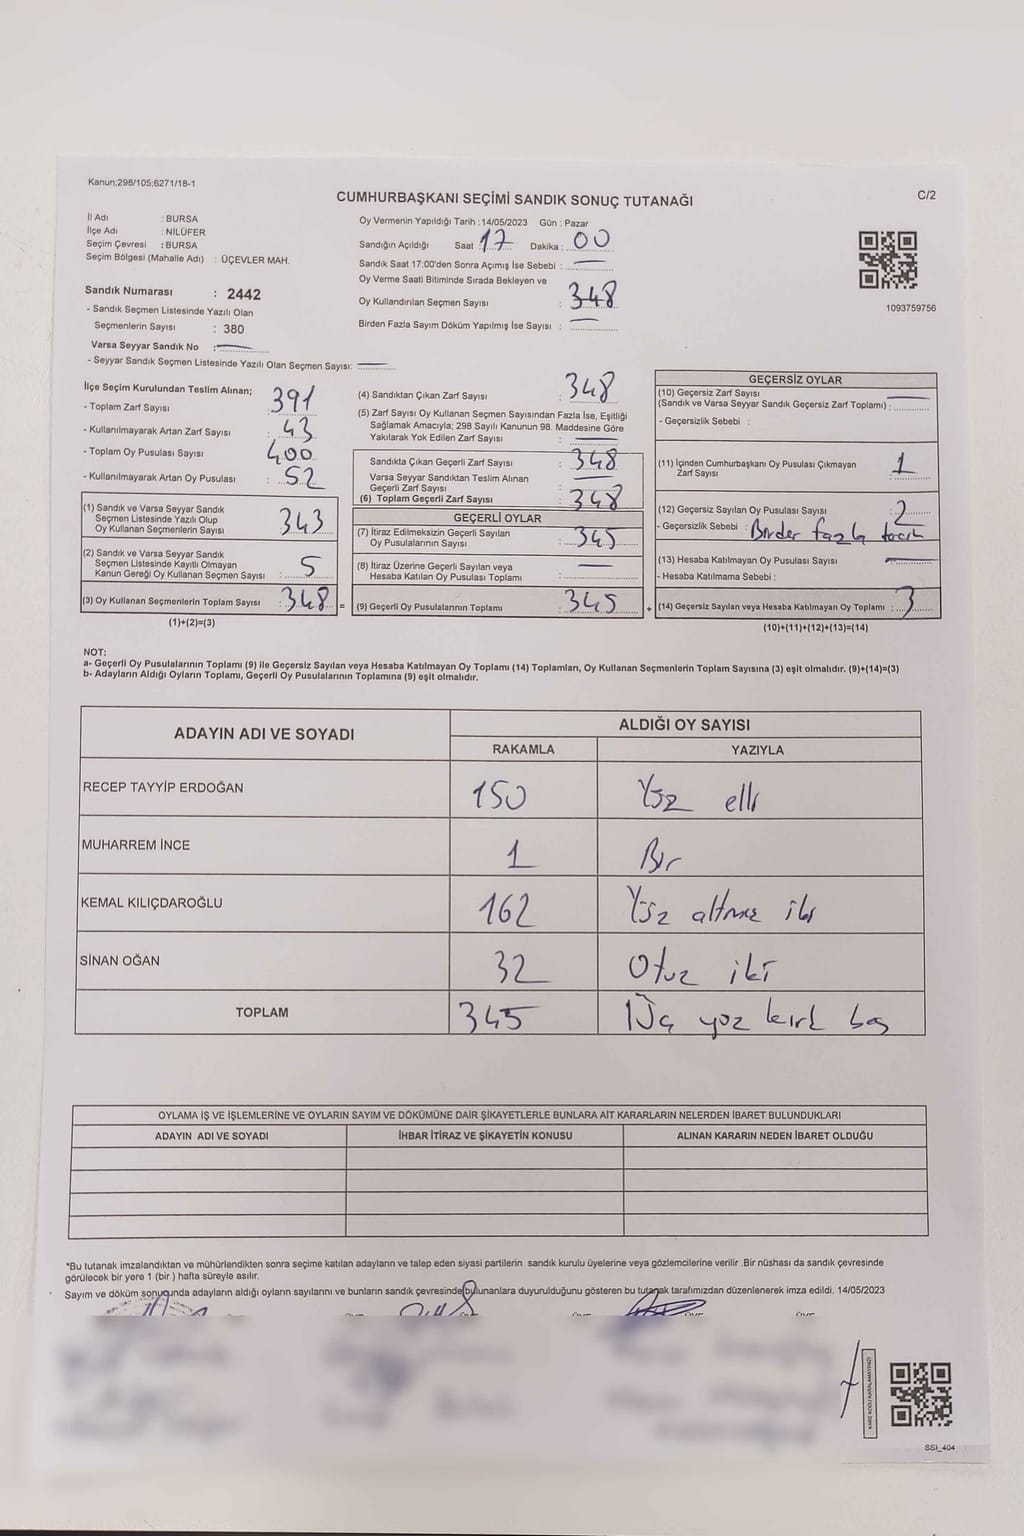 Kanun;298/105;6271/18-1
CUMHURBAŞKANI SEÇİMİ SANDIK SONUÇ TUTANAĞI
C/2
İl Adı : BURSA
İlçe Adı : NİLÜFER
Seçim Çevresi : BURSA
Seçim Bölgesi (Mahalle Adı) : ÜÇEVLER MAH.
Oy Vermenin Yapıldığı Tarih : 14/05/2023 Gün : Pazar
Sandığın Açıldığı Saat : 17 Dakika : 00
Sandık Saat 17:00'den Sonra Açımış İse Sebebi :
Oy Verme Saati Bitiminde Sırada Bekleyen ve
Oy Kullandırılan Seçmen Sayısı : 348
Birden Fazla Sayım Döküm Yapılmış İse Sayısı :
1093759756
Sandık Numarası : 2442
- Sandık Seçmen Listesinde Yazılı Olan
Seçmenlerin Sayısı : 380
Varsa Seyyar Sandık No :
- Seyyar Sandık Seçmen Listesinde Yazılı Olan Seçmen Sayısı:
İlçe Seçim Kurulundan Teslim Alınan;
- Toplam Zarf Sayısı : 391
- Kullanılmayarak Artan Zarf Sayısı : 43
- Toplam Oy Pusulası Sayısı : 400
- Kullanılmayarak Artan Oy Pusulası : 52
(1) Sandık ve Varsa Seyyar Sandık
Seçmen Listesinde Yazılı Olup
Oy Kullanan Seçmenlerin Sayısı : 343
(2) Sandık ve Varsa Seyyar Sandık
Seçmen Listesinde Kayıtlı Olmayan
Kanun Gereği Oy Kullanan Seçmen Sayısı : 5
(3) Oy Kullanan Seçmenlerin Toplam Sayısı : 348 =
(1)+(2)=(3)
(4) Sandıktan Çıkan Zarf Sayısı : 348
(5) Zarf Sayısı Oy Kullanan Seçmen Sayısından Fazla İse, Eşitliği
Sağlamak Amacıyla; 298 Sayılı Kanunun 98. Maddesine Göre
Yakılarak Yok Edilen Zarf Sayısı :
Sandıkta Çıkan Geçerli Zarf Sayısı : 348
Varsa Seyyar Sandıktan Teslim Alınan
Geçerli Zarf Sayısı :
(6) Toplam Geçerli Zarf Sayısı : 348
GEÇERLİ OYLAR
(7) İtiraz Edilmeksizin Geçerli Sayılan
Oy Pusulalarının Sayısı : 345
(8) İtiraz Üzerine Geçerli Sayılan veya
Hesaba Katılan Oy Pusulası Toplamı :
(9) Geçerli Oy Pusulalarının Toplamı : 345 +
GEÇERSİZ OYLAR
(10) Geçersiz Zarf Sayısı
(Sandık ve Varsa Seyyar Sandık Geçersiz Zarf Toplamı) :
- Geçersizlik Sebebi :
(11) İçinden Cumhurbaşkanı Oy Pusulası Çıkmayan
Zarf Sayısı : 1
(12) Geçersiz Sayılan Oy Pusulası Sayısı : 2
- Geçersizlik Sebebi : Birden fazla tercih
(13) Hesaba Katılmayan Oy Pusulası Sayısı :
- Hesaba Katılmama Sebebi :
(14) Geçersiz Sayılan veya Hesaba Katılmayan Oy Toplamı : 3
(10)+(11)+(12)+(13)=(14)
NOT:
a- Geçerli Oy Pusulalarının Toplamı (9) ile Geçersiz Sayılan veya Hesaba Katılmayan Oy Toplamı (14) Toplamları, Oy Kullanan Seçmenlerin Toplam Sayısına (3) eşit olmalıdır. (9)+(14)=(3)
b- Adayların Aldığı Oyların Toplamı, Geçerli Oy Pusulalarının Toplamına (9) eşit olmalıdır.
ADAYIN ADI VE SOYADI
ALDIĞI OY SAYISI
RAKAMLA YAZIYLA
RECEP TAYYİP ERDOĞAN 150 Yüz elli
MUHARREM İNCE 1 Bir
KEMAL KILIÇDAROĞLU 162 Yüz altmış iki
SİNAN OĞAN 32 Otuz iki
TOPLAM 345 Üç yüz kırk beş
OYLAMA İŞ VE İŞLEMLERİNE VE OYLARIN SAYIM VE DÖKÜMÜNE DAİR ŞİKAYETLERLE BUNLARA AİT KARARLARIN NELERDEN İBARET BULUNDUKLARI
ADAYIN ADI VE SOYADI İHBAR İTİRAZ VE ŞİKAYETİN KONUSU ALINAN KARARIN NEDEN İBARET OLDUĞU
*Bu tutanak imzalandıktan ve mühürlendikten sonra seçime katılan adayların ve talep eden siyasi partilerin sandık kurulu üyelerine veya gözlemcilerine verilir .Bir nüshası da sandık çevresinde
görülecek bir yere 1 (bir ) hafta süreyle asılır.
Sayım ve döküm sonucunda adayların aldığı oyların sayılarını ve bunların sandık çevresinde bulunanlara duyurulduğunu gösteren bu tutanak tarafımızdan düzenlenerek imza edildi. 14/05/2023
KARE KODU KARALAMAYINIZ!
SSİ_404